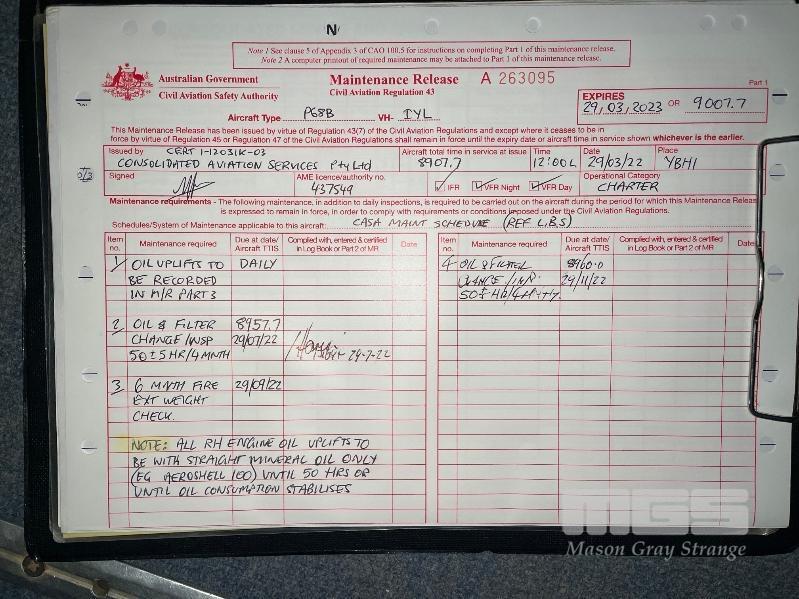 N
Note 1 See clause 5 of Appendix 3 of CAO 100.5 for instructions on completing Part 1 of this maintenance release.
Note 2 A computer printout of required maintenance may be attached to Part 1 of this maintenance release.
Australian Government
Civil Aviation Safety Authority
Maintenance Release A 263095
Civil Aviation Regulation 43
Part 1
EXPIRES
29/03/2023 OR 9007.7
Aircraft Type P68B VH- IYL
This Maintenance Release has been issued by virtue of Regulation 43(7) of the Civil Aviation Regulations and except where it ceases to be in
force by virtue of Regulation 45 or Regulation 47 of the Civil Aviation Regulations shall remain in force until the expiry date or aircraft time in service shown whichever is the earlier.
Issued by CERT 1-12031K-03
CONSOLIDATED AVIATION SERVICES Pty Ltd
Aircraft total time in service at issue
8907.7
Time
12:00L
Date
29/03/22
Place
YBHI
Signed
AME licence/authority no.
437549
IFR VFR Night VFR Day
Operational Category
CHARTER
Maintenance requirements - The following maintenance, in addition to daily inspections, is required to be carried out on the aircraft during the period for which this Maintenance Release
is expressed to remain in force, in order to comply with requirements or conditions imposed under the Civil Aviation Regulations.
Schedules/System of Maintenance applicable to this aircraft: CASA MAINT SCHEDULE (REF L.B.S)
Item no. Maintenance required Due at date/ Aircraft TTIS Complied with, entered & certified in Log Book or Part 2 of MR Date
Item no. Maintenance required Due at date/ Aircraft TTIS Complied with, entered & certified in Log Book or Part 2 of MR Date
1 OIL UPLIFTS TO DAILY
BE RECORDED
IN M/R PART 3
2 OIL & FILTER 8957.7
CHANGE/INSP 29/07/22
50±5HR/4MNTH 29-7-22
3 6 MNTH FIRE 29/09/22
EXT WEIGHT
CHECK.
NOTE: ALL RH ENGINE OIL UPLIFTS TO
BE WITH STRAIGHT MINERAL OIL ONLY
(EG AEROSHELL 100) UNTIL 50 HRS OR
UNTIL OIL CONSUMPTION STABILISES
4 OIL & FILTER
29/11/22
MGS
Mason Gray Strange